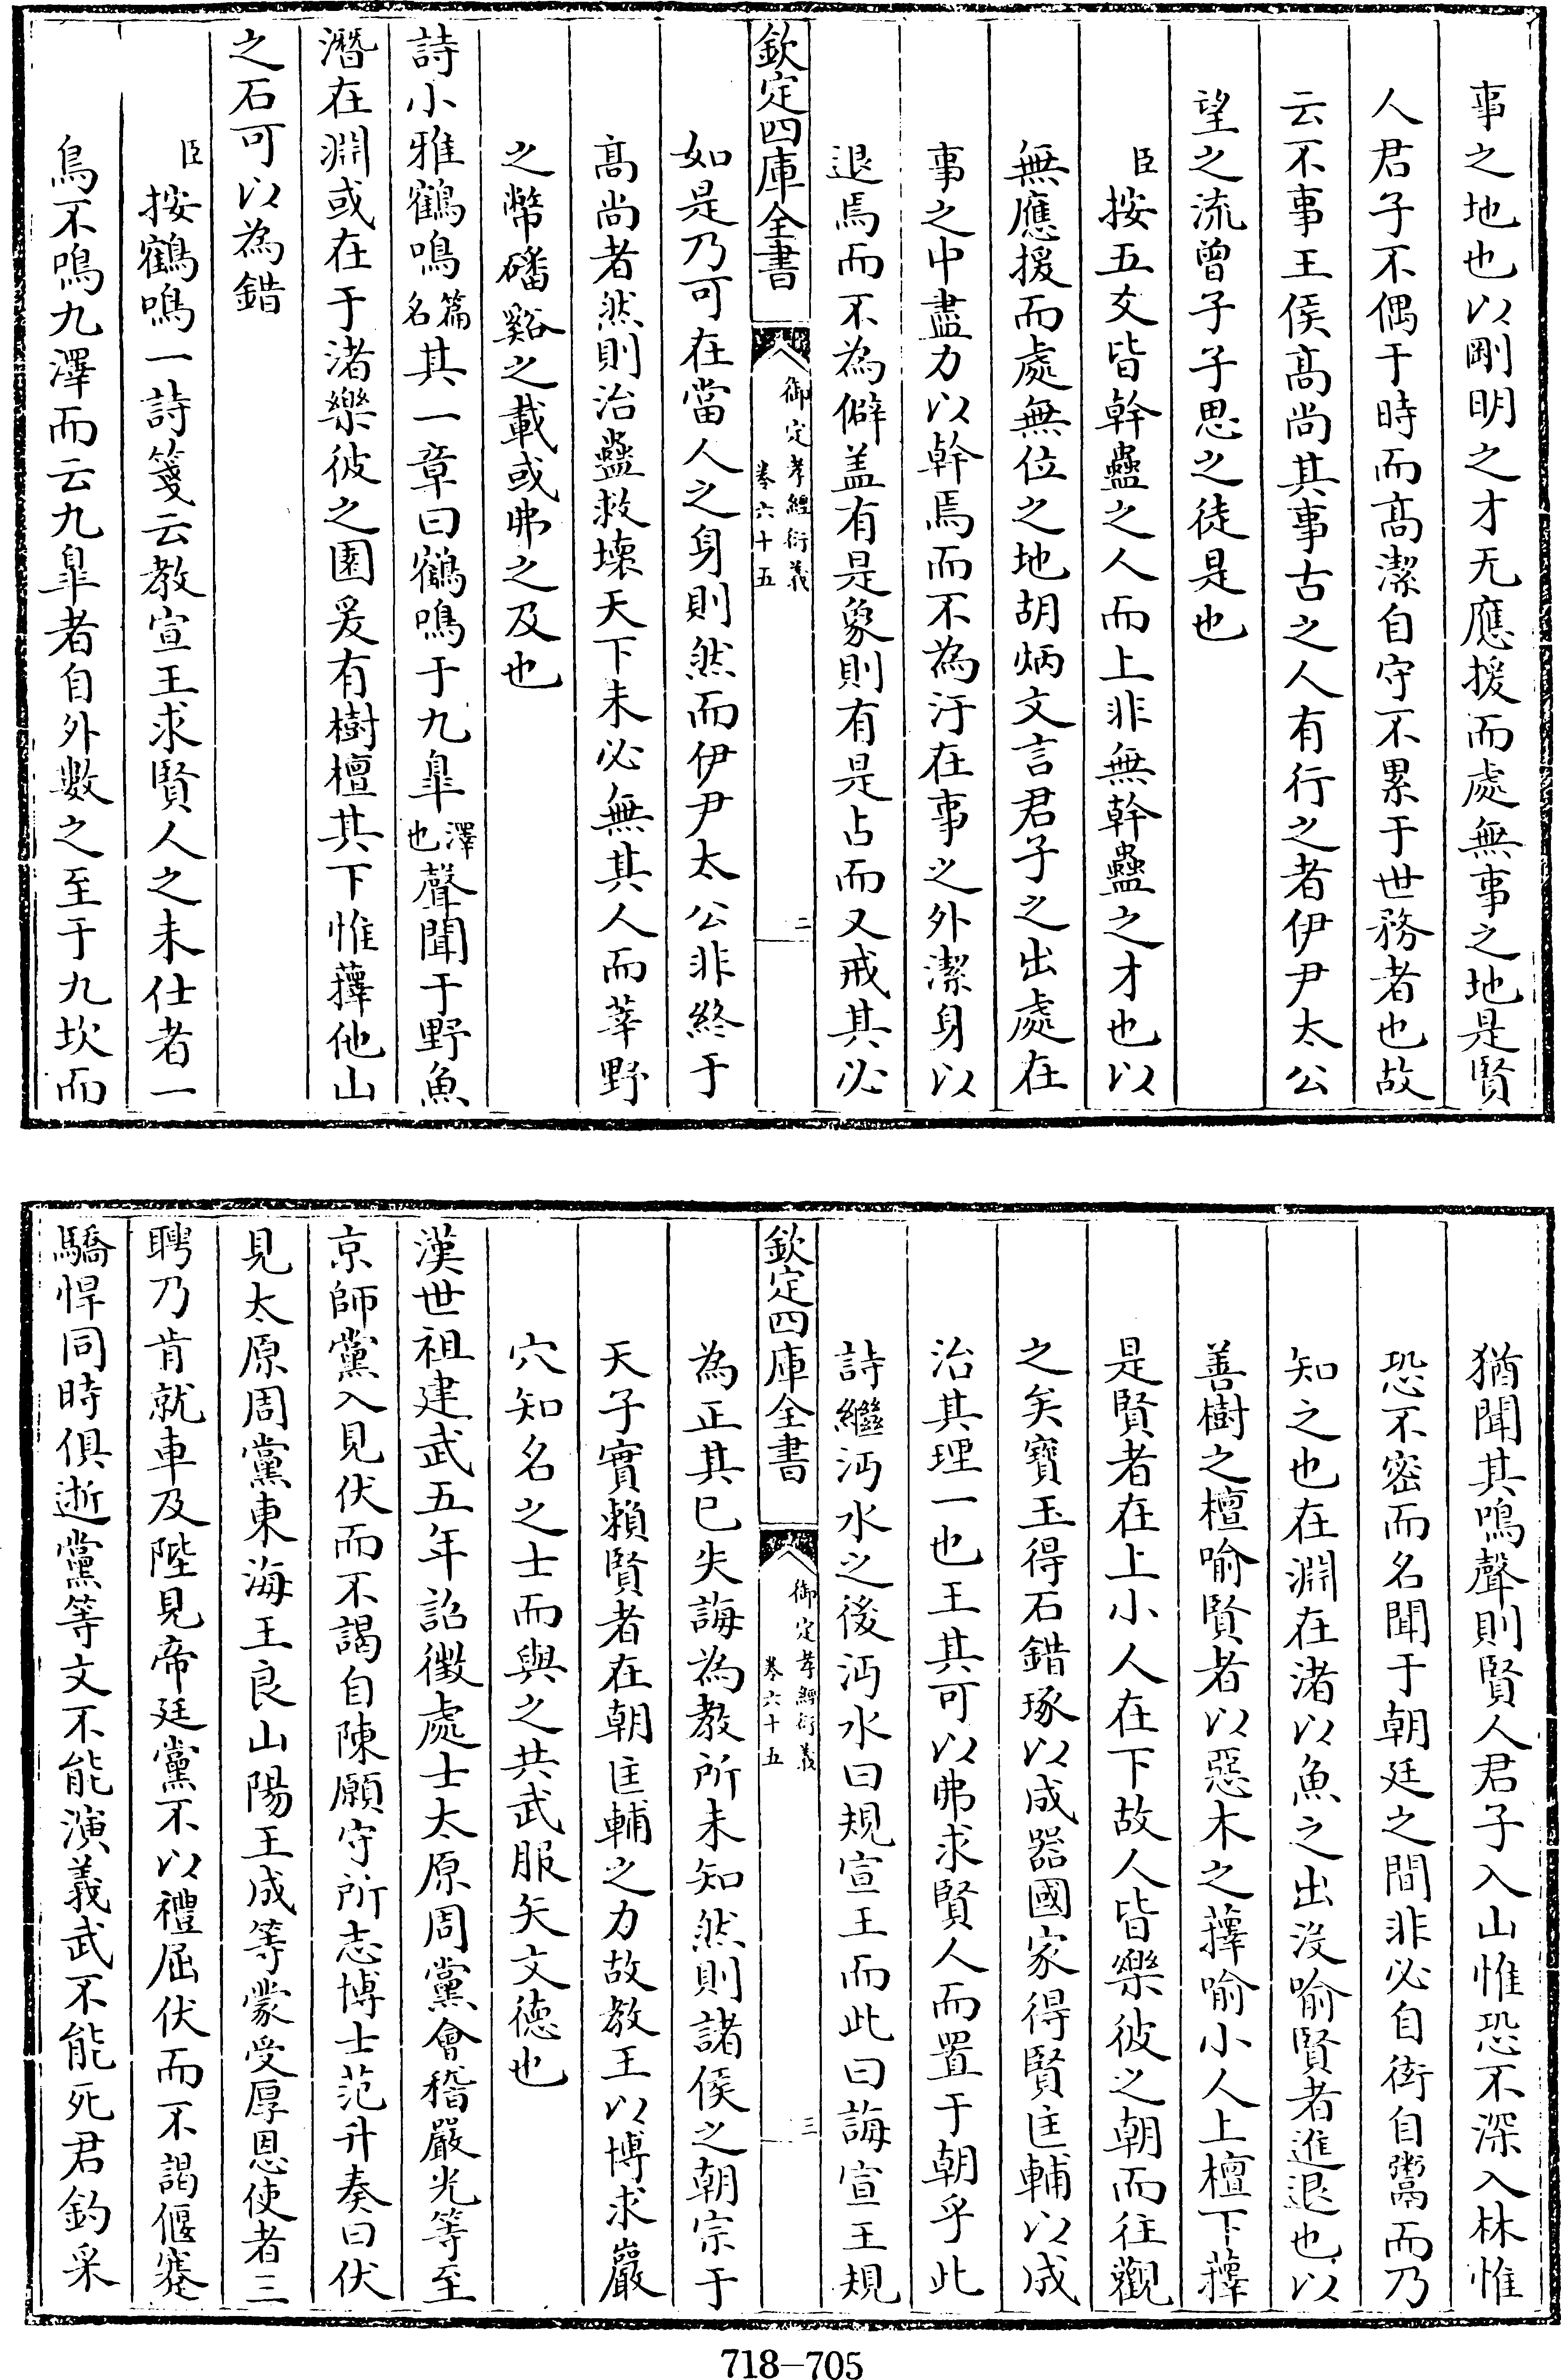 事之地也以剛明之才无應援而處無事之地是賢
人君子不偶于時而髙潔自守不累于世務者也故
云不事王侯髙尚其事古之人有行之者伊尹太公
望之流曾子子思之徒是也
臣按五爻皆幹蠱之人而上非無幹蠱之才也以
無應援而處無位之地胡炳文言君子之出處在
事之中盡力以幹焉而不為汙在事之外潔身以
退焉而不為僻盖有是象則有是占而又戒其必
欽定四庫全書
御定孝經衍義
卷六十五
二
如是乃可在當人之身則然而伊尹太公非終于
髙尚者然則治蠱救壊天下未必無其人而莘野
之幣磻谿之載或弗之及也
詩小雅鶴鳴篇名其一章曰鶴鳴于九臯澤也聲聞于野魚
潛在淵或在于渚樂彼之園爰有樹檀其下惟蘀他山
之石可以為錯
臣按鶴鳴一詩箋云教宣王求賢人之未仕者一
鳥不鳴九澤而云九臯者自外數之至于九坎而
猶聞其鳴聲則賢人君子入山惟恐不深入林惟
恐不密而名聞于朝廷之間非必自衒自鬻而乃
知之也在淵在渚以魚之出没喻賢者進退也以
善樹之檀喻賢者以惡木之蘀喻小人上檀下蘀
是賢者在上小人在下故人皆樂彼之朝而往觀
之矣寶玉得石錯琢以成器國家得賢匡輔以成
治其理一也王其可以弗求賢人而置于朝乎此
詩繼沔水之後沔水曰規宣王而此曰誨宣王規
欽定四庫全書
御定孝經衍義
卷六十五
三
為正其已失誨為教所未知然則諸侯之朝宗于
天子實賴賢者在朝匡輔之力故教王以博求巖
穴知名之士而與之共武服矢文德也
漢世祖建武五年詔徵處士太原周黨會稽嚴光等至
京師黨入見伏而不謁自陳願守所志博士范升奏曰伏
見太原周黨東海王良山陽王成等蒙受厚恩使者三
聘乃肯就車及陛見帝廷黨不以禮屈伏而不謁偃蹇
驕悍同時俱逝黨等文不能演義武不能死君釣采
718-705